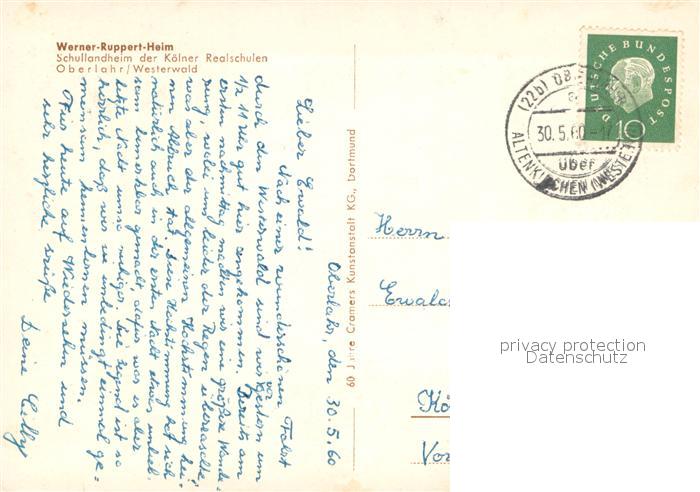 Werner-Ruppert-Heim
Schullandheim der Kölner Realschulen
Oberlahr/Westerwald
Oberlahr, den 30.5.60
Lieber Ewald!
Nach einer wunderschönen Fahrt
durch den Westerwald sind wir gestern um
½ 11 Uhr gut hier angekommen. Bereits am
ersten Nachmittag machten wir eine größere Wande-
rung, wobei uns leider der Regen überraschte,
was aber der allgemeinen Hochstimmung kei-
nen Abbruch tat. Diese Hochstimmung hat sich
natürlich auch in der ersten Nacht etwas unlieb-
sam bemerkbar gemacht, dafür war es aber
letzte Nacht umso ruhiger. Die Gegend ist so
herrlich, daß wir sie unbedingt einmal ge-
meinsam kennenlernen müssen.
Für heute auf Wiedersehn und
sehr herzliche Grüße
Deine Cilly
60 Jahre Cramers Kunstanstalt KG., Dortmund
DEUTSCHE BUNDESPOST
10
(22b)
30.5.60-17
über
ALTENKIRCHEN (WESTERW)
Herrn
Ewald
privacy protection
Datenschutz
Kö
Vo